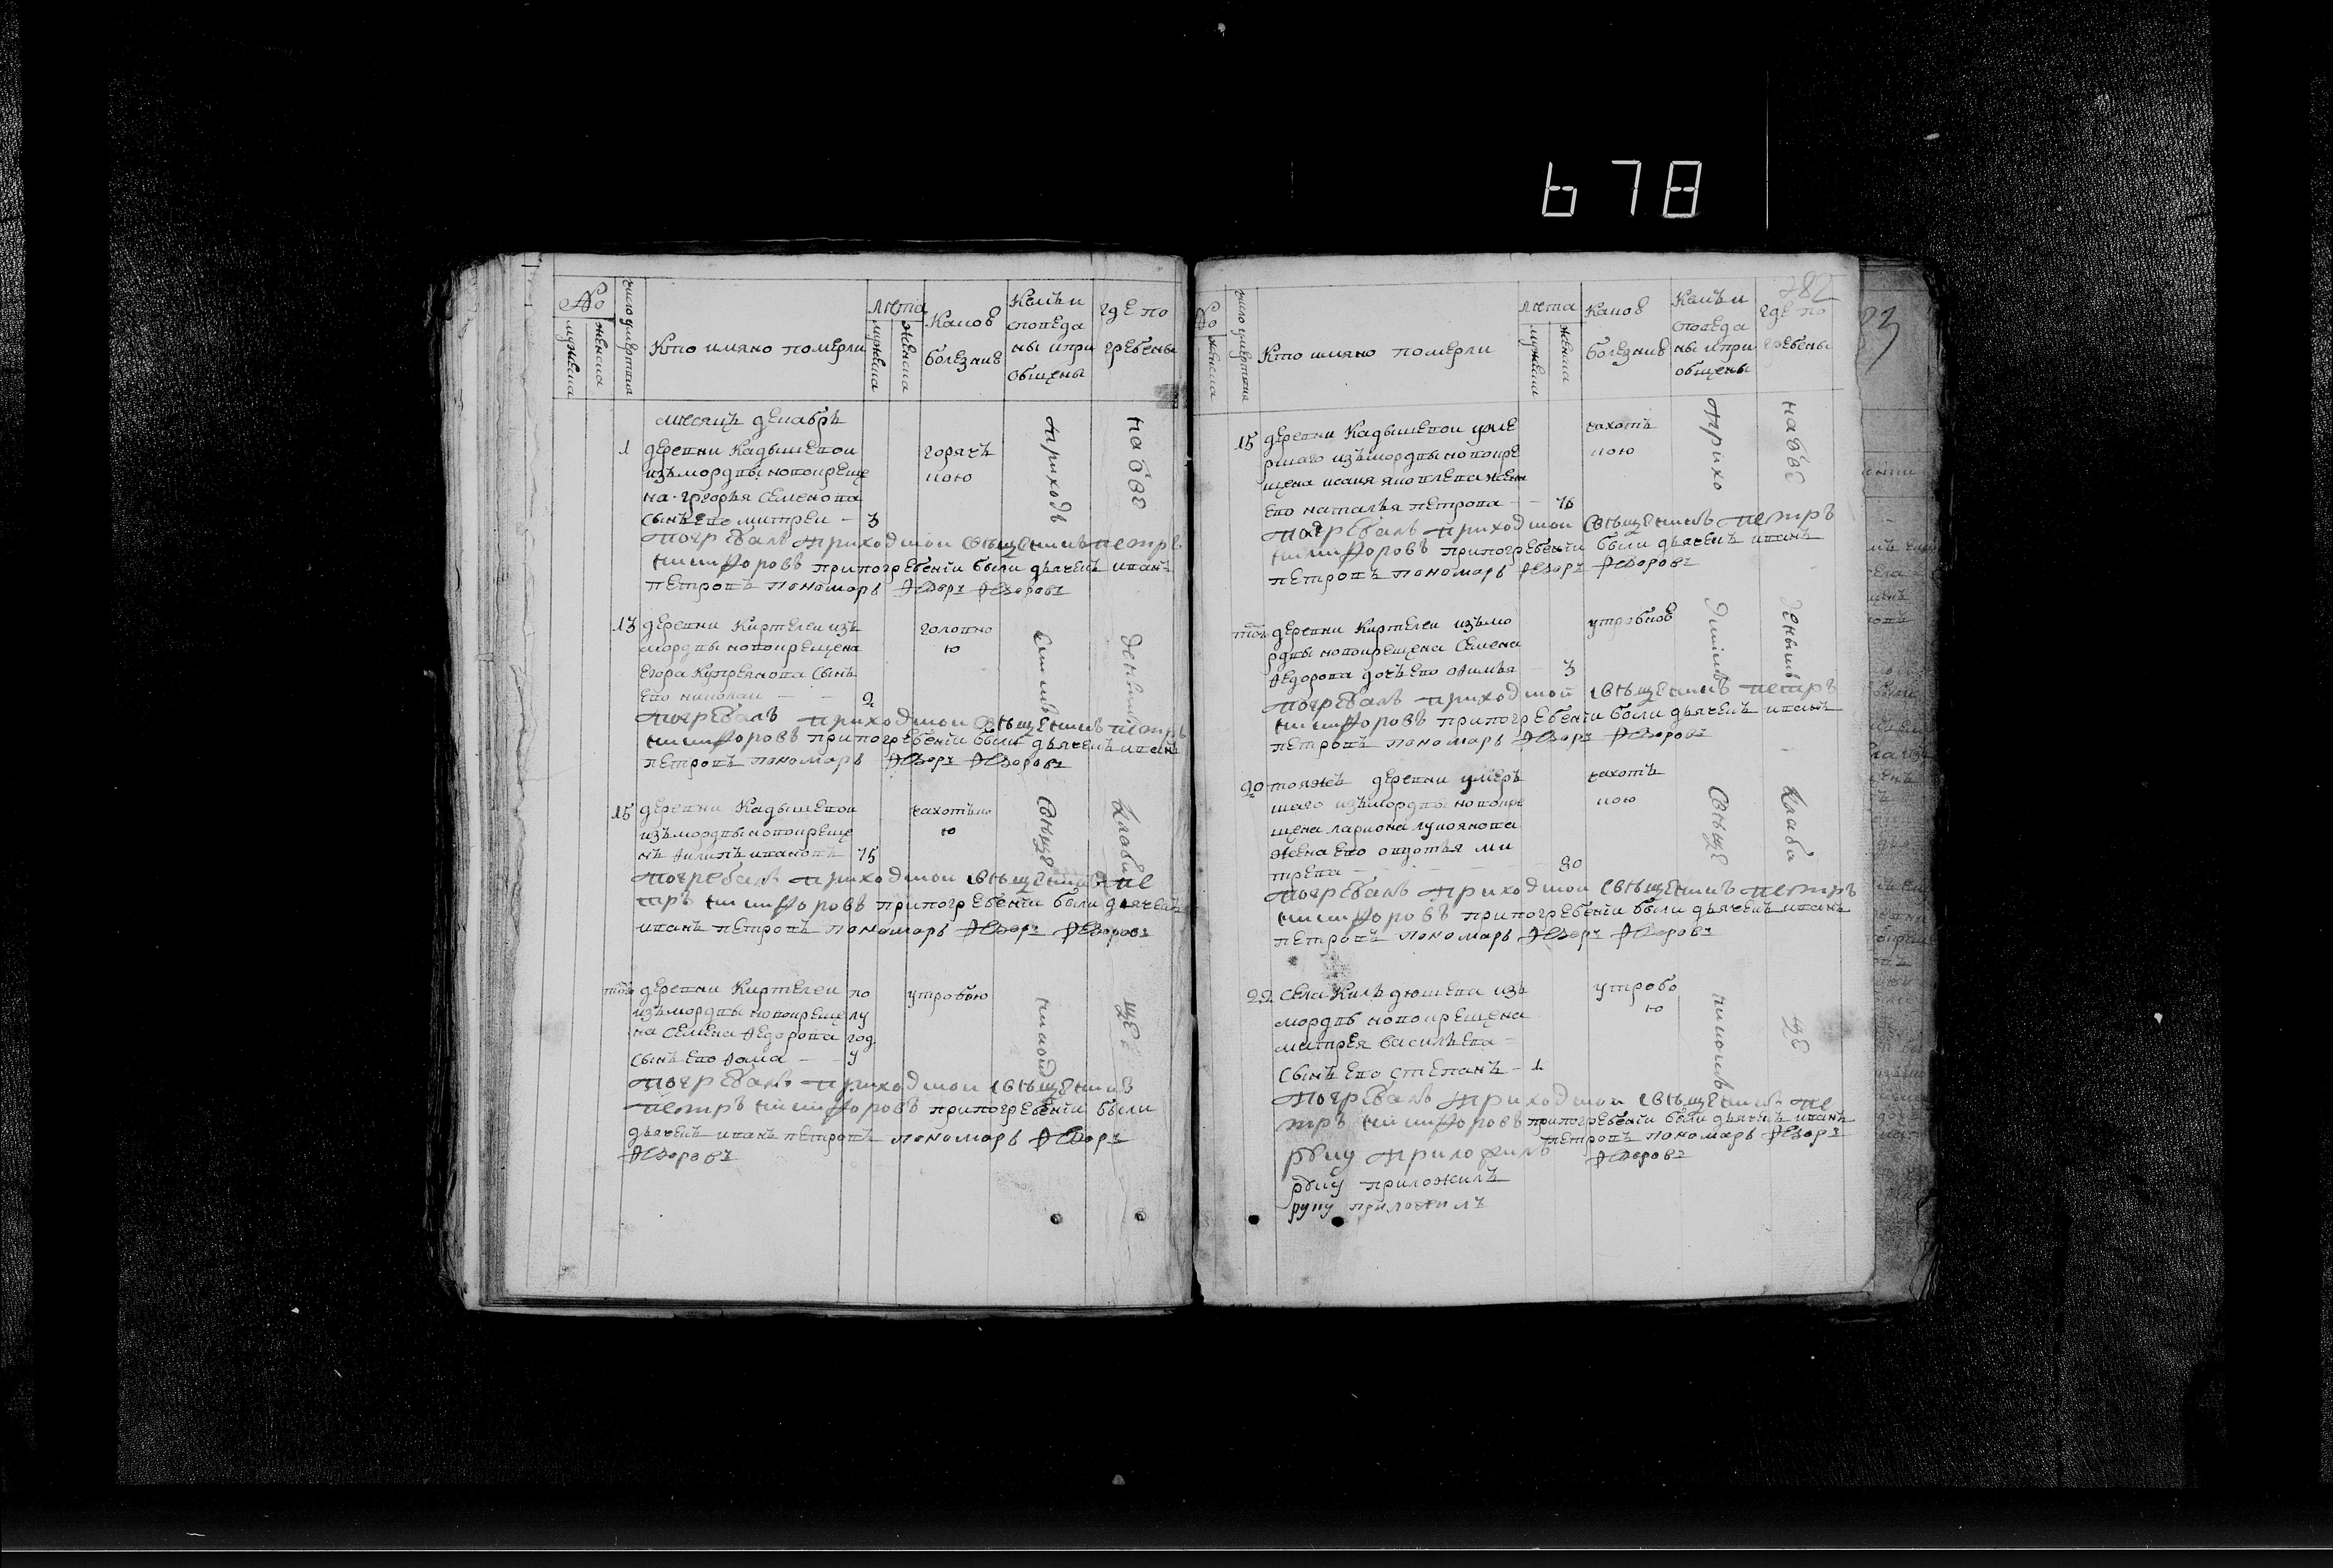 678
№
мужеска
женска
число умертвия
Кто имяно померли
лета
мужеска
женска
Какою
болезнию
Кемъ и
споведа
ны и при
общены
где по
гребены
месяцъ декабрь
1 деревни Кадышевои горяч
изъ мордвы новокреще кою
на григорья Семенова
сынъ ево митреи — 3
погребалъ приходскои священникъ петръ
никифоровъ при погребении были дьячекъ иванъ
петровъ пономарь Федоръ Федоровъ
13 деревни Киртелеи изъ головно
мордвы новокрещена ю
егора Купреянова сынъ
ево николаи — — 2
погребалъ приходскои священникъ петръ
никифоровъ при погребении были дьячекъ иванъ
петровъ пономарь Федоръ Федоровъ
15 деревни Кадышевои чахотъко
изъ мордвы новокреще ю
нъ Филипъ ивановъ 75
погребалъ приходскои священникъ пе
тръ никифоровъ при погребении были дьячекъ
иванъ петровъ пономарь Федоръ Федоровъ
деревни Киртелеи по утробою
изъ мордвы новокреще лу
на Семена Федорова год
сынъ ево Фома — у
погребалъ приходскои священникъ
петръ никифоровъ при погребении были
дьячекъ иванъ петровъ пономарь Федоръ
Федоровъ
приходъ
свяще
на клаби
ще
282
№
женска
число умертвия
Кто имяно померли
лета
мужеска
женска
Какою
болезнию
Кемъ и
споведа
ны и при
общены
где по
гребены
15 деревни Кадышевои уме чахотъ
ршаго изъ мордвы новокре кою
щена исаия яковлева жена
ево наталья петрова — 76
погребалъ приходскои священникъ петръ
никифоровъ при погребении были дьячекъ иванъ
петровъ пономарь Федоръ Федоровъ
деревни Киртелеи изъ мо утробною
рдвы новокрещена Семена
Федорова дочь ево 3
погребалъ приходскои священникъ петръ
никифоровъ при погребении были дьячекъ иванъ
петровъ пономарь Федоръ Федоровъ
20 тояжъ деревни умеръ чахотъ
шаго изъ мордвы новокре кою
щена лариона лукоянова
жена ево овдотья ми
трева — 80
погребалъ приходскои священникъ петръ
никифоровъ при погребении были дьячекъ иванъ
петровъ пономарь Федоръ Федоровъ
22 села Кильдюшева изъ утробо
мордвы новокрещена ю
митрея васильева
сынъ ево степанъ — 1
погребалъ приходскои священникъ пе
тръ никифоровъ при погребении были дьячекъ иванъ
петровъ пономарь Федоръ
руку приложилъ Федоровъ
руку приложилъ
руку приложилъ
прихо
свяще
клаби
ще
23